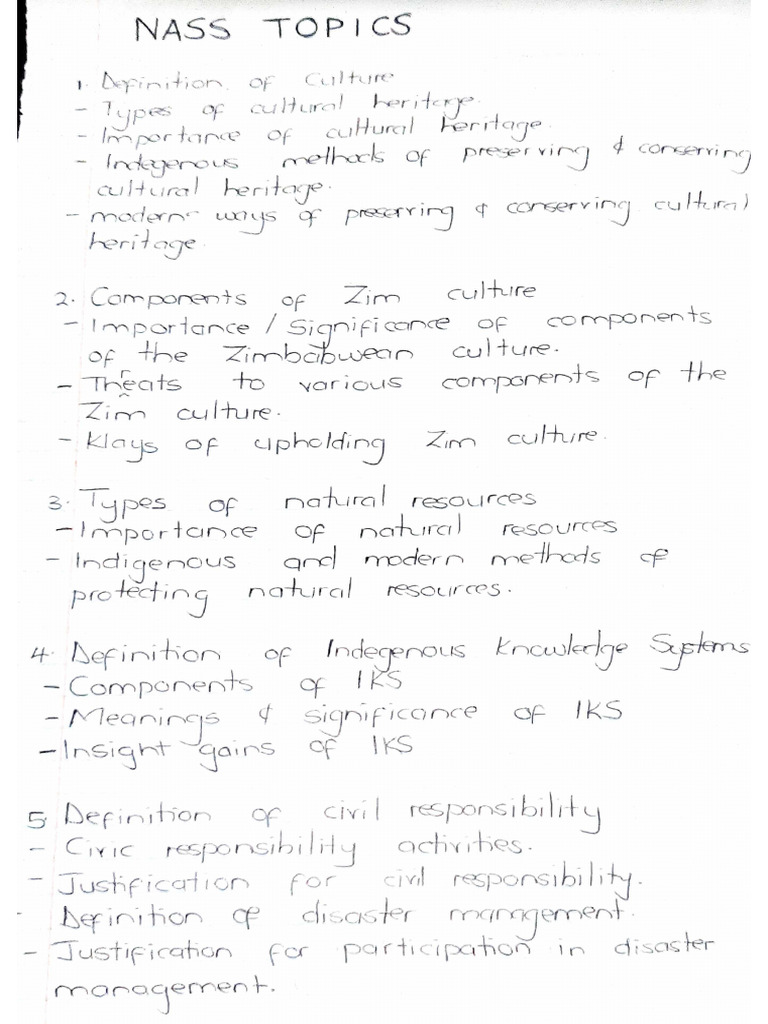 NASS TOPICS
1. Definition of Culture
- Types of cultural heritage.
- Importance of cultural heritage.
- Indegenous methods of preserving & conserving
cultural heritage.
- modern ways of preserving & conserving cultural
heritage
2. Components of Zim culture
- Importance / Significance of components
of the Zimbabwean culture.
- Threats to various components of the
Zim culture.
- Ways of upholding Zim culture.
3. Types of natural resources
- Importance of natural resources
- Indigenous and modern methods of
protecting natural resources.
4. Definition of Indegenous Knowledge Systems
- Components of IKS
- Meanings & significance of IKS
- Insight gains of IKS
5. Definition of civil responsibility
- Civic responsibility activities.
- Justification for civil responsibility.
- Definition of disaster management.
- Justification for participation in disaster
management.